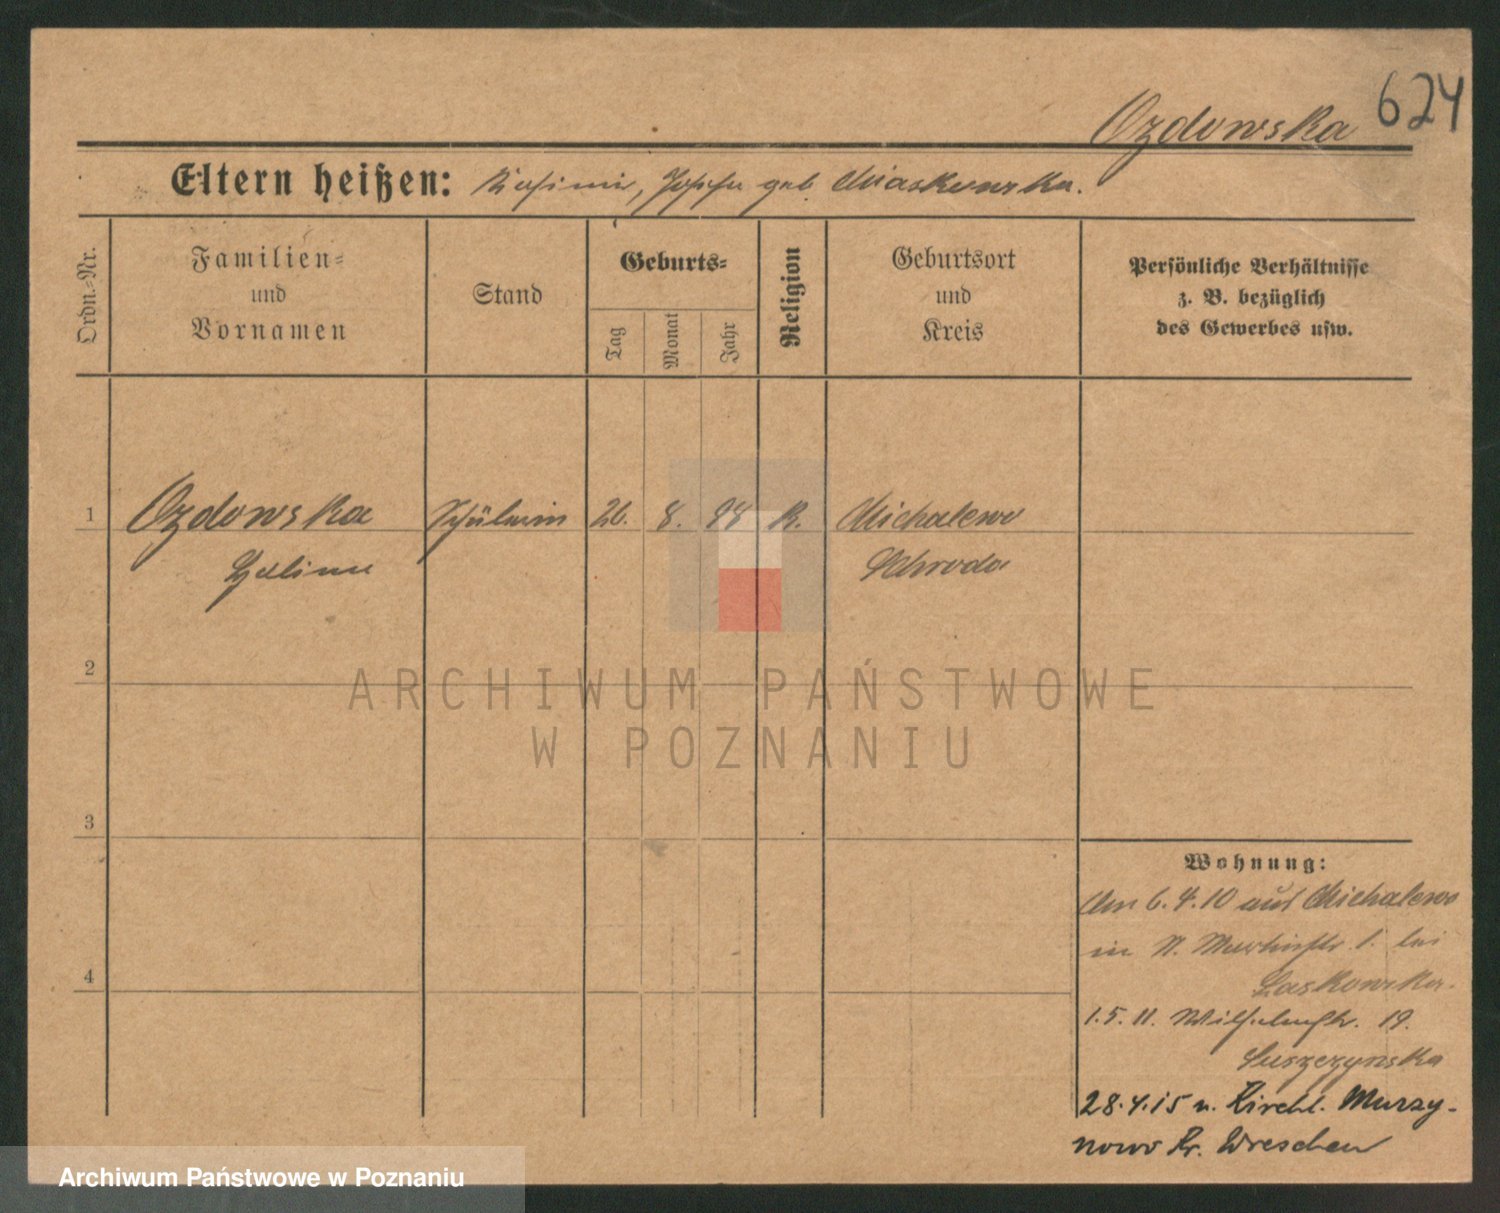 624
Ozdowska
Eltern heißen: Kasimir, Josefa geb Miaskowska.
Ordn.-Nr.
Familien- und Vornamen
Stand
Geburts-
Tag
Monat
Jahr
Religion
Geburtsort und Kreis
Persönliche Verhältnisse
z. B. bezüglich
des Gewerbes usw.
1 Ozdowska Schülerin 26. 8. 98 K. Michalewo
Halina Schroda
2
ARCHIWUM PAŃSTWOWE
W POZNANIU
3
Wohnung:
Am 6.4.10 aus Michalewo
in N. Martinstr. 1. bei
Laskowska.
4
1.5.11. Wilhelmstr. 19.
Suszczynska
28.4.15 n. Kirchl. Murzy-
nowo Kr. Wreschen
Archiwum Państwowe w Poznaniu